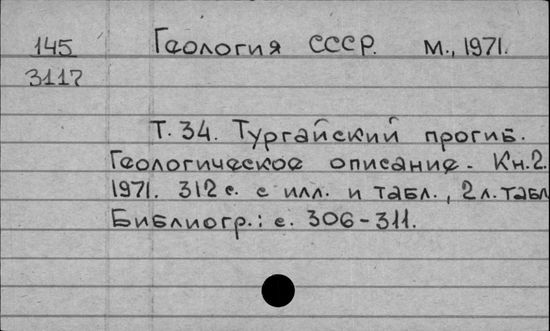 145
3117
Геология СССР. М., 1971.
Т. 34. Тургайский прогиб.
Геологическое описание. Кн.2.
1971. 312 с. с илл. и табл., 2 л. табл
Библиогр.: с. 306-311.